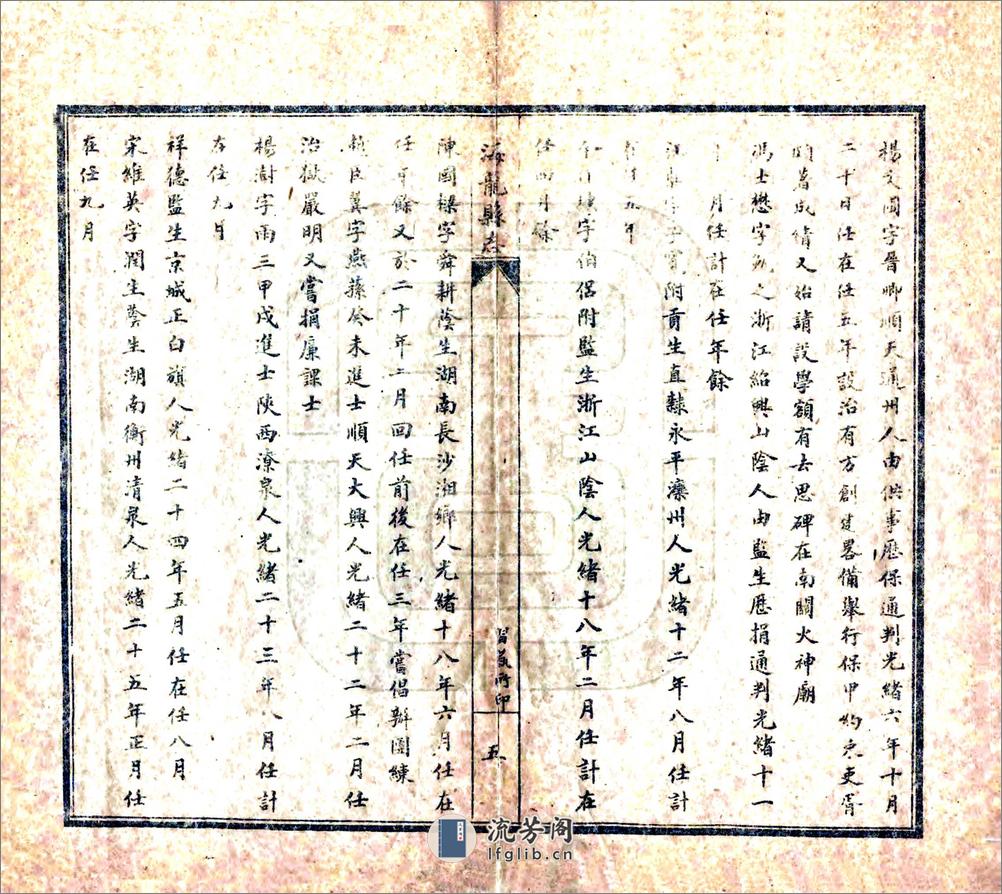 楊文圃字晉卿順天通州人由供事歷保通判光緒六年十月
二十日任在任五年設治有方創建畧備舉行保甲約束吏胥
著成績又始請設學額有去思碑在南關火神廟
馮士懋字之浙江紹興山陰人由監生歷捐通判光緒十一
年月任計在任年餘
字附貢生直隸永平灤州人光緒十二年八月任計
五年
字伯侶附監生浙江山陰人光緒十八年二月任計在
任四月餘
海龍縣志
習藝所印
五
陳國樑字舜耕蔭生湖南長沙湘鄉人光緒十八年六月任在
任年餘又於二十年二月回任前後在任三年嘗倡辦團練
臣翼字燕蓀癸未進士順天大興人光緒二十二年二月任
治獄嚴明又嘗捐廉課士
楊澍字雨三甲戌進士陝西潦泉人光緒二十三年八月任計
在任九月
祥德監生京城正白旗人光緒二十四年五月任在任八月
宋維英字潤生蔭生湖南衡州清泉人光緒二十五年正月任
在任九月
流芳阁
lfglib.cn